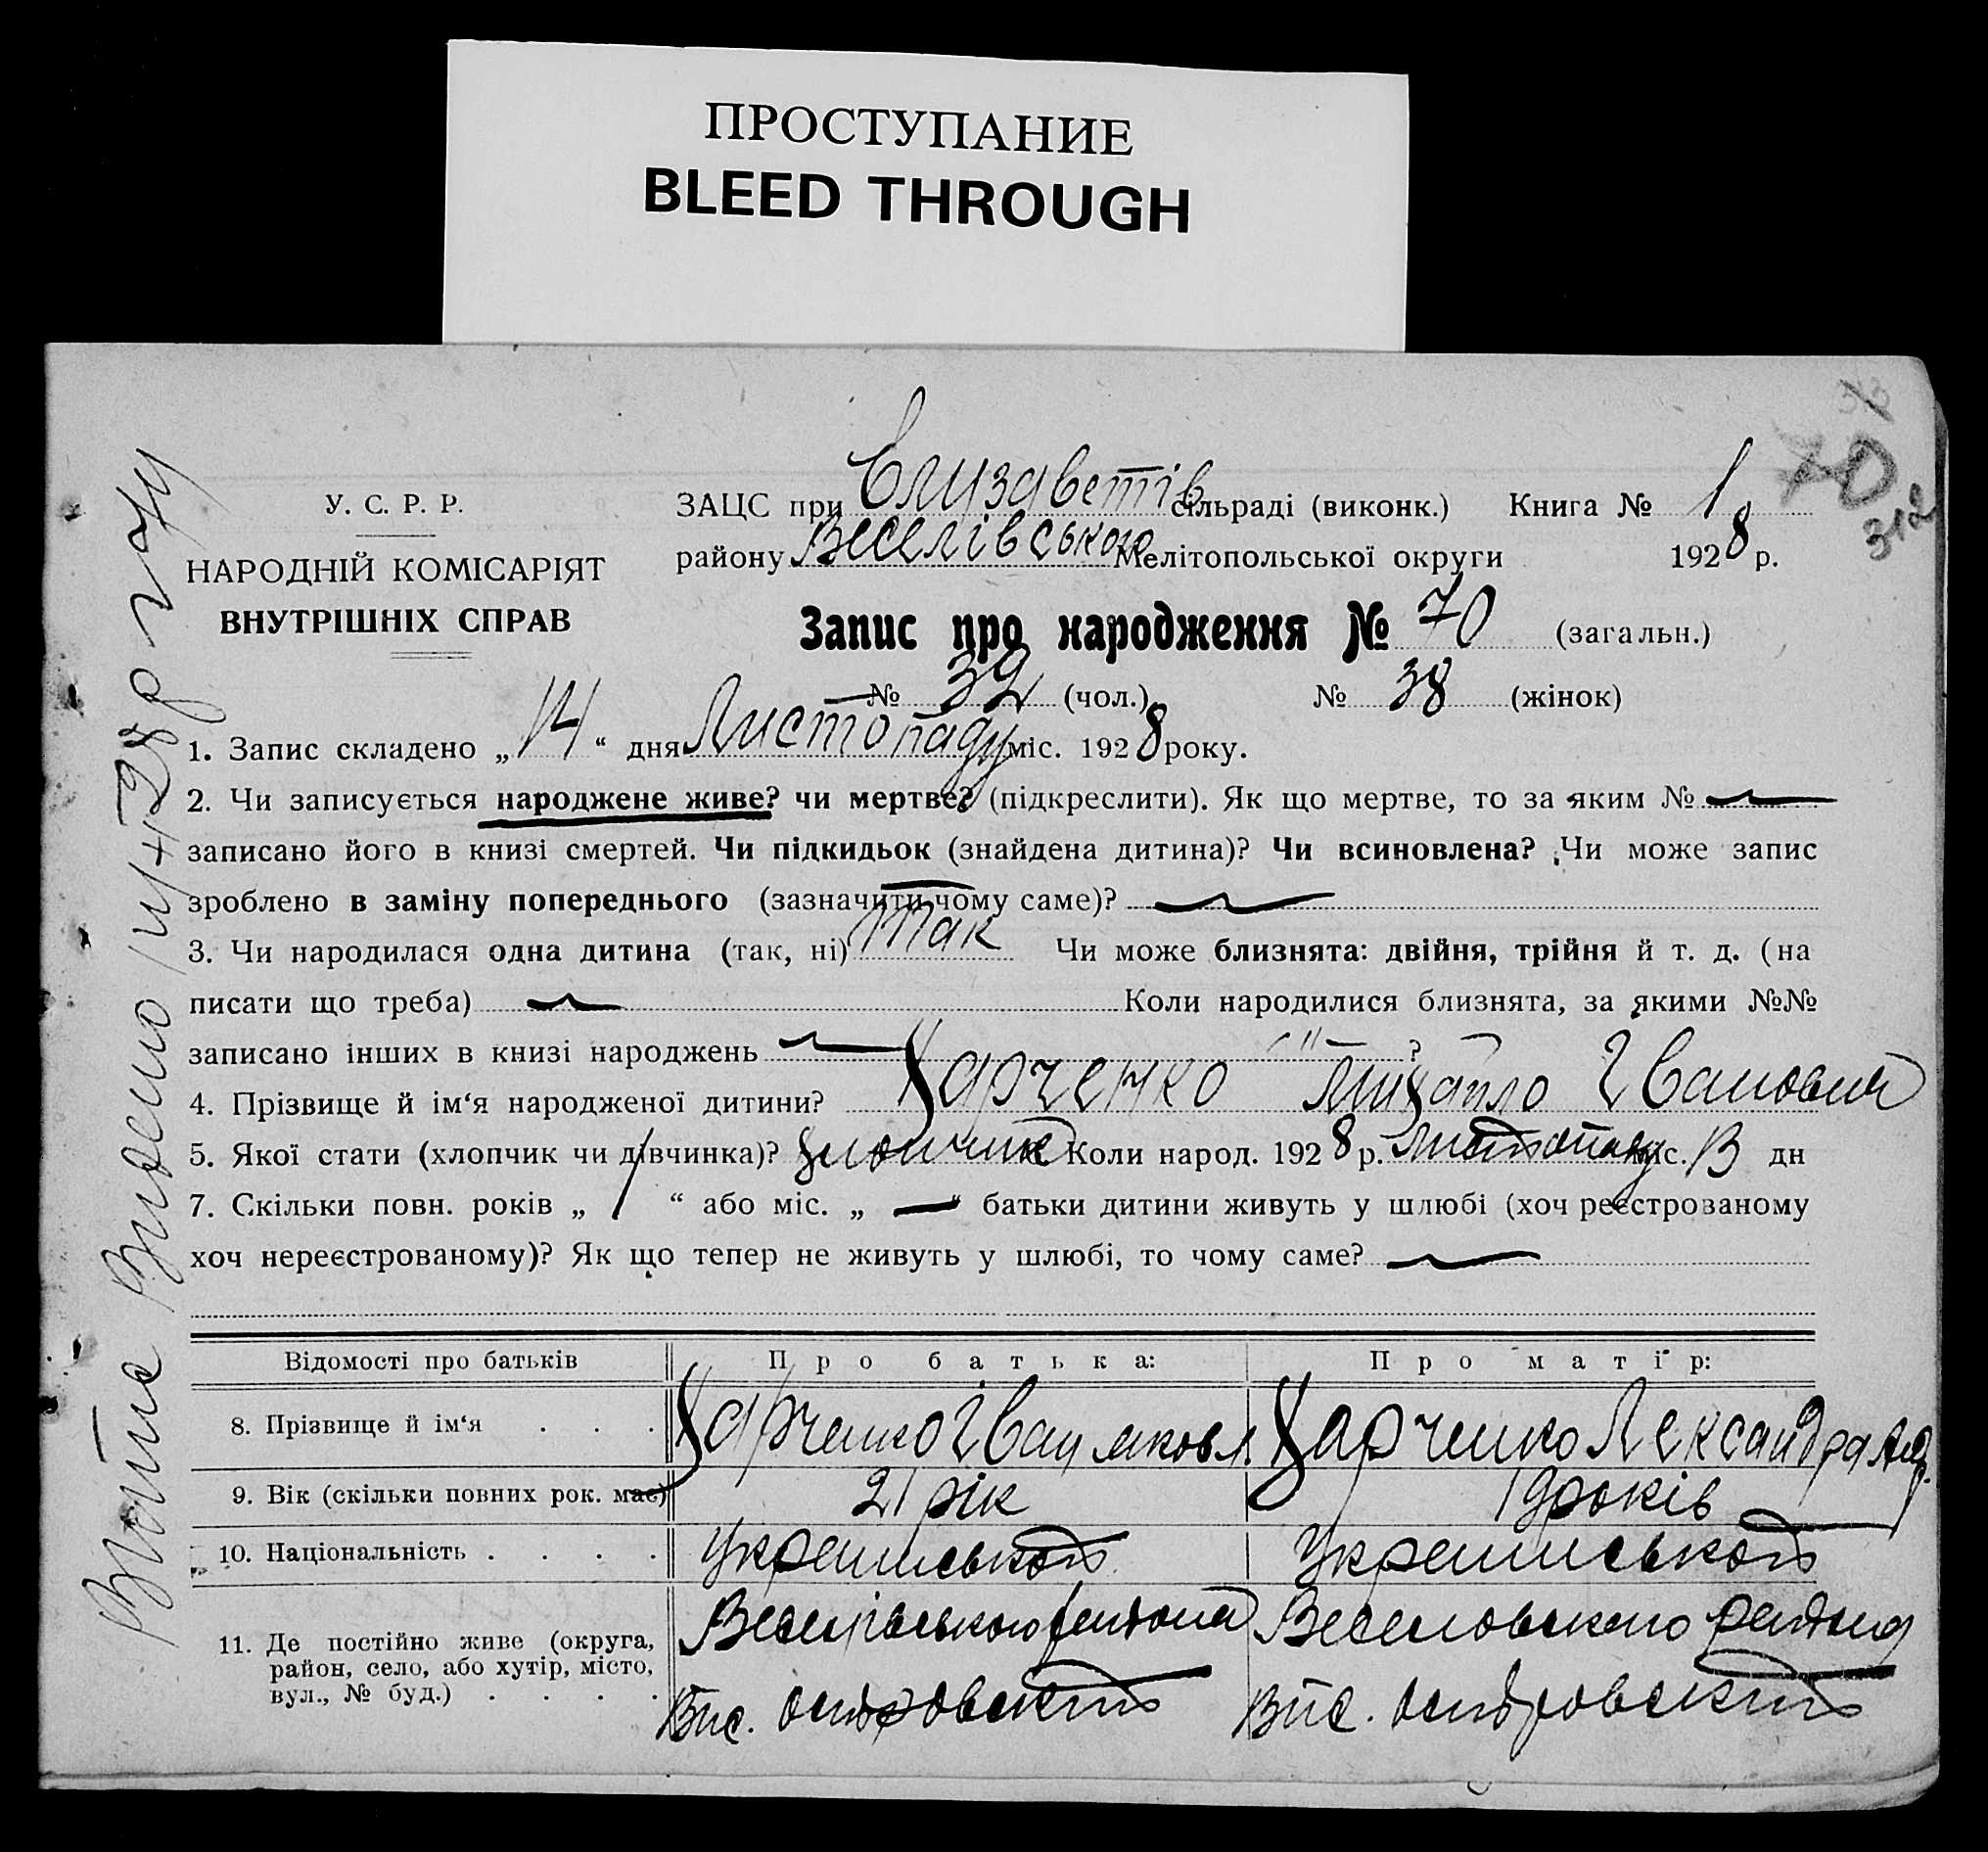 ПРОСТУПАНИЕ
BLEED THROUGH
У. С. Р. Р.
НАРОДНІЙ КОМІСАРІЯТ
ВНУТРІШНІХ СПРАВ
ЗАЦС при Єлизаветів сільраді (виконк.) Книга № 1
району Веселівського Мелітопольської округи 1928 р.
70
312
Запис про народження № 70 (загальн.)
№ 32 (чол.) № 38 (жінок)
1. Запис складено „14“ дня Листопаду міс. 1928 року.
2. Чи записується народжене живе? чи мертве? (підкреслити). Як що мертве, то за яким №
записано його в книзі смертей. Чи підкидьок (знайдена дитина)? Чи всиновлена? Чи може запис
зроблено в заміну попереднього (зазначити чому саме)?
3. Чи народилася одна дитина (так, ні) так Чи може близнята: двійня, трійня й т. д. (на
писати що треба) Коли народилися близнята, за якими №№
записано інших в книзі народжень ?
4. Прізвище й ім‘я народженої дитини? Харченко Михайло Іванович
5. Якої стати (хлопчик чи дівчинка)? хлопчик Коли народ. 1928 р. листопаду міс. 13 дн
7. Скільки повн. років „ 1 “ або міс. „ — “ батьки дитини живуть у шлюбі (хоч реєстрованому
хоч нереєстрованому)? Як що тепер не живуть у шлюбі, то чому саме?
Відомості про батьків Про батька: Про матір:
8. Прізвище й ім‘я . . . Харченко Іван яковл. Харченко Лександра Анд.
9. Вік (скільки повних рок. має) 21 рік 19 років
10. Національність . . . . Украинської Украинської
11. Де постійно живе (округа, район, село, або хутір, місто, вул., № буд.) . . . . Веселівського району Веселовского району
островский островский